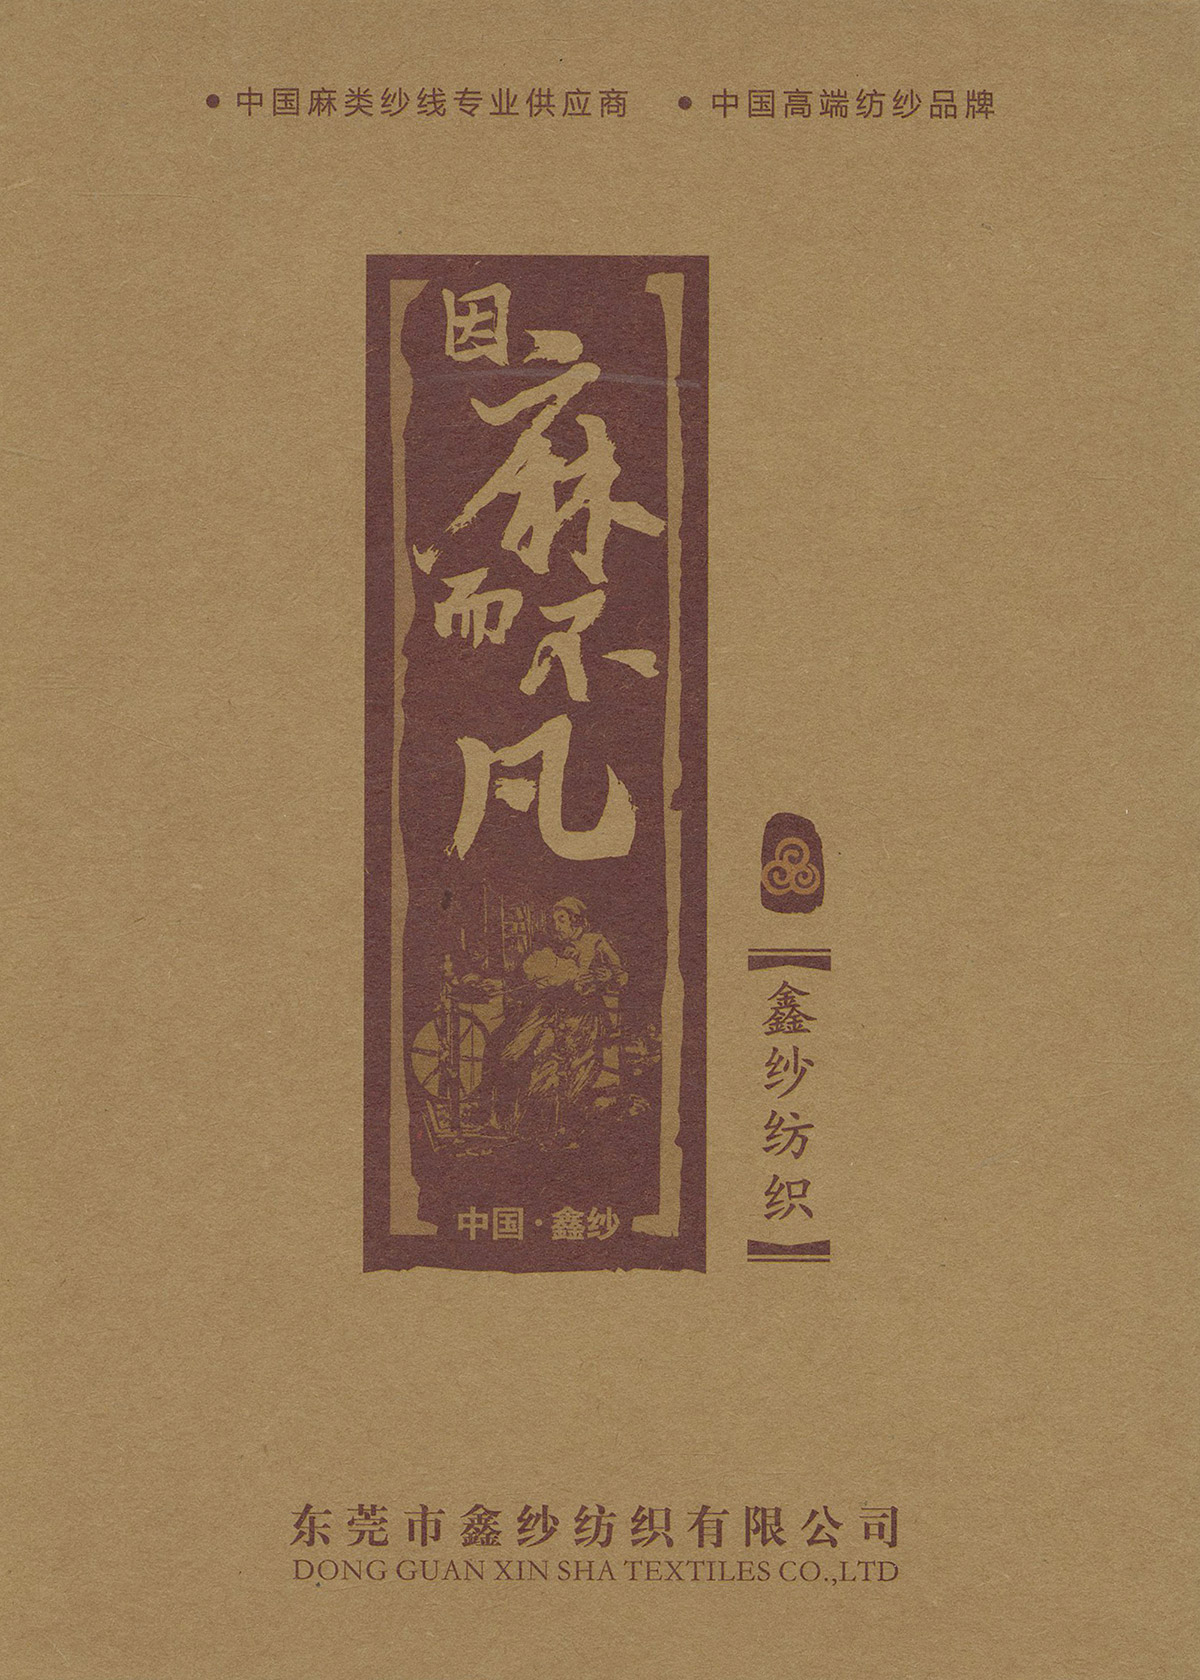 • 中国麻类纱线专业供应商 • 中国高端纺纱品牌
因麻而不凡
中国·鑫纱
鑫纱纺织
东莞市鑫纱纺织有限公司
DONG GUAN XIN SHA TEXTILES CO.,LTD